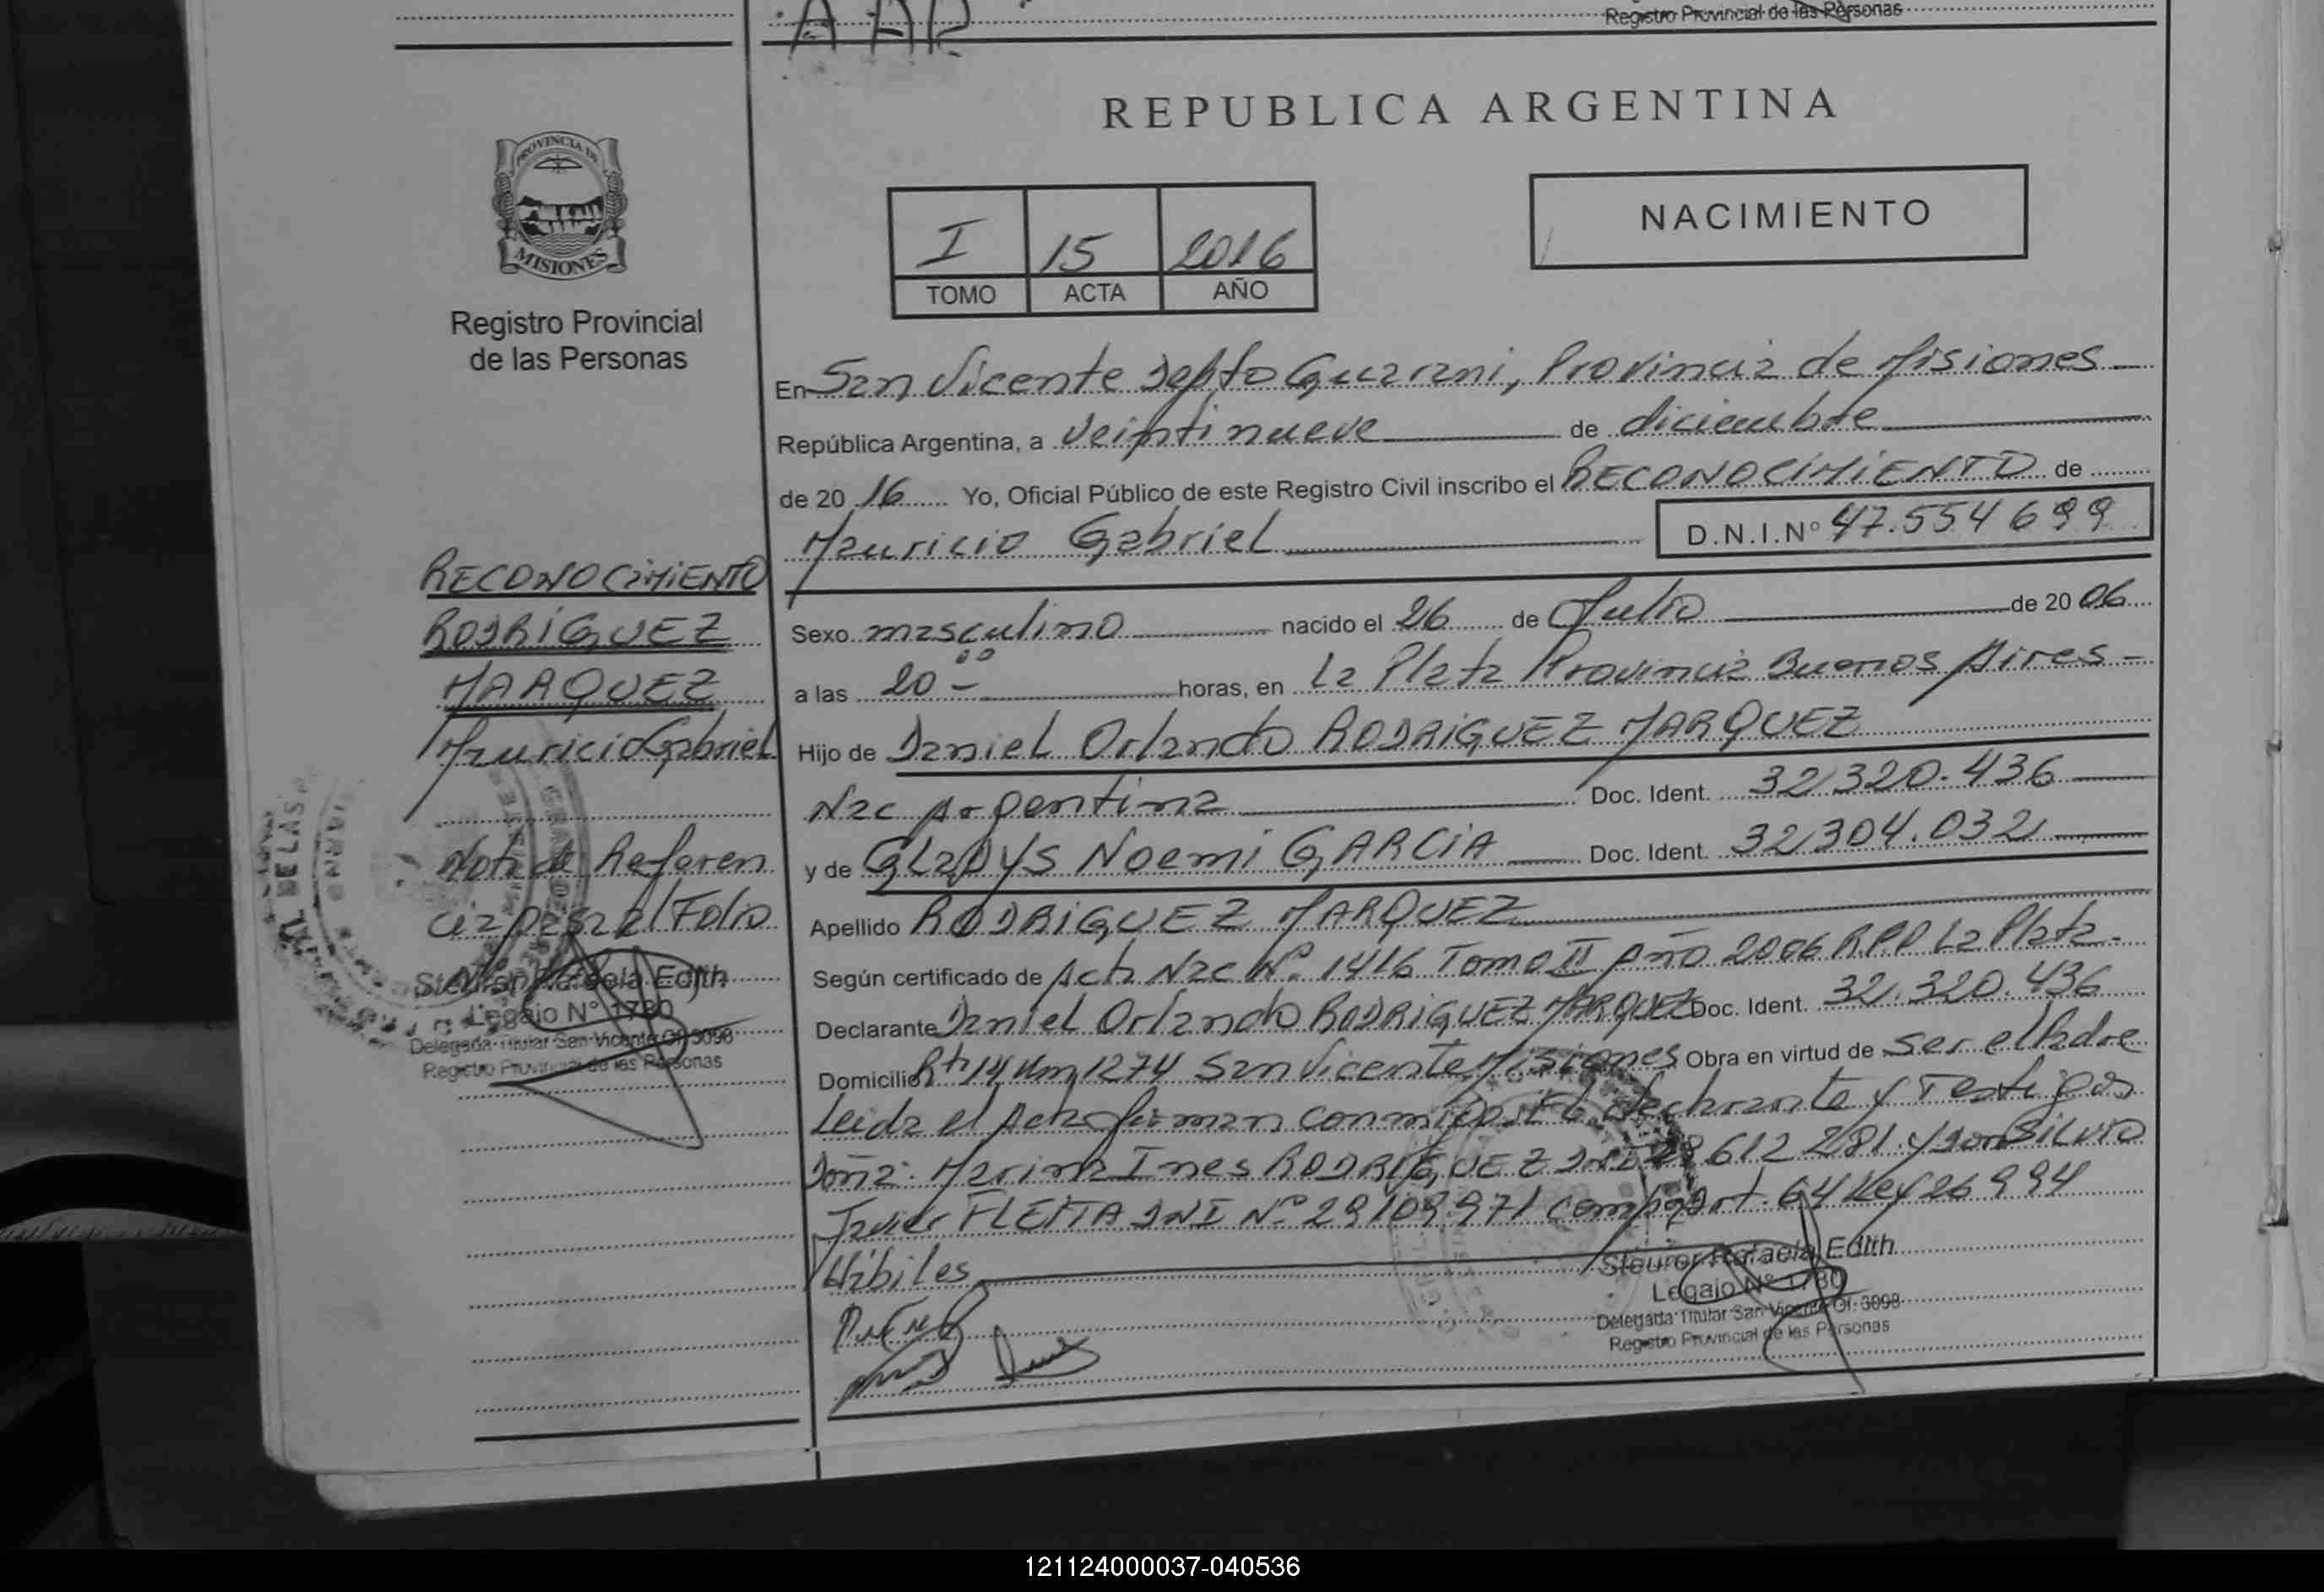 Registro Provincial de las Personas
PROVINCIA DE
MISIONES
Registro Provincial
de las Personas
REPUBLICA ARGENTINA
I 15 2016
TOMO ACTA AÑO
NACIMIENTO
En San Vicente Depto Guarani, Provincia de Misiones
República Argentina, a veintinueve de diciembre
de 20 16 Yo, Oficial Público de este Registro Civil inscribo el RECONOCIMIENTO de
Mauricio Gabriel D.N.I.Nº 47.554699
Sexo masculino nacido el 26 de Julio de 20 06
a las 20 00 horas, en La Plata Provincia Buenos Aires
Hijo de Daniel Orlando RODRIGUEZ MARQUEZ
Nac Argentina Doc. Ident. 32320.436
y de GLaDYS Noemi GARCIA Doc. Ident. 32304.032
Apellido RODRIGUEZ MARQUEZ
Según certificado de Acta Nac Nº 1416 Tomo II Año 2006 R.P.P La Plata
Declarante Daniel Orlando RODRIGUEZ MARQUEZ Doc. Ident. 32.320.436
Domicilio Rta 14 Km 1274 San Vicente Misiones Obra en virtud de ser el Padre
Leida el Acta firman conmigo el declarante y Testigos
Doña: Marina Ines RODRIGUEZ DNI 28612281 y Don Silvio
Javier FLEITA DNI Nº 29109971 Art. 64 Ley 26994
Hábiles
Steurer Rafaela Edith
Legajo Nº 1780
Delegada Titular San Vicente Of. 3098
Registro Provincial de las Personas
RECONOCIMIENTO
RODRIGUEZ
MARQUEZ
Mauricio Gabriel
Nota de Referen
cia pasa al Folio
Steurer Rafaela Edith
Legajo Nº 1780
Delegada Titular San Vicente Of. 3098
Registro Provincial de las Personas
121124000037-040536